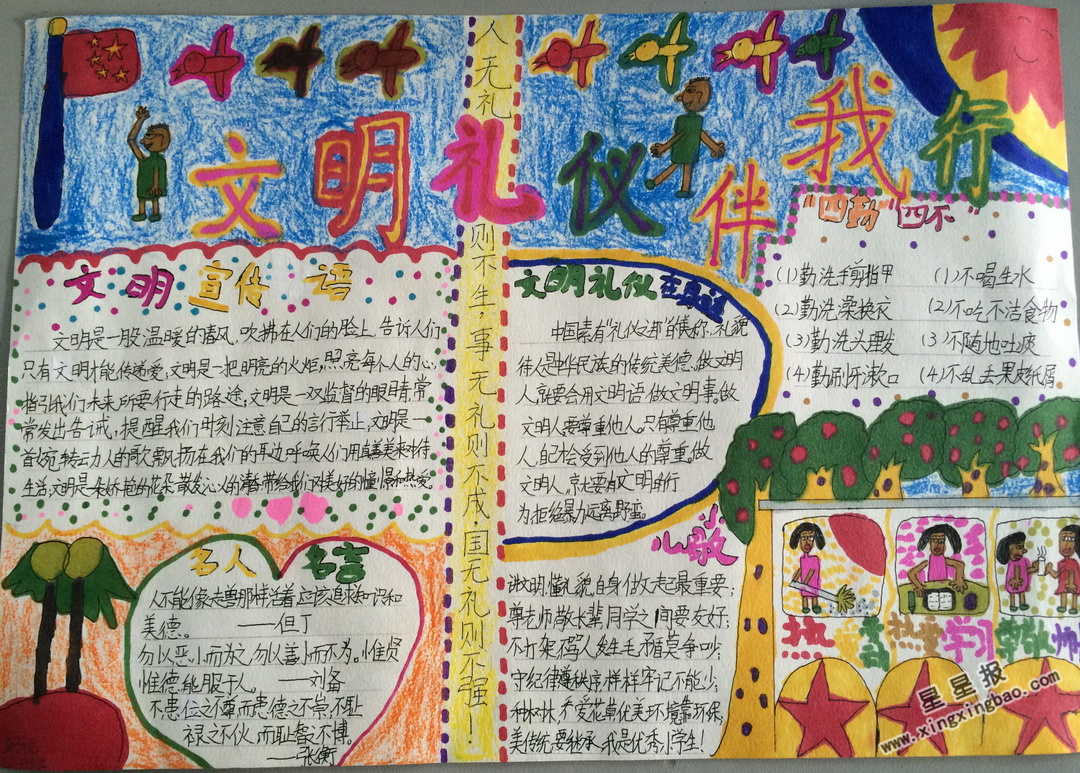 文明礼仪伴我行
人无礼则不生，事无礼则不成，国无礼则不强！
文明宣传语
文明是一股温暖的春风，吹拂在人们的脸上，告诉人们
只有文明才能传递爱，文明是一把明亮的火炬，照亮每个人的心，
指引我们未来所要行走的路途，文明是一双监督的眼睛，常
常发出告诫，提醒我们时刻注意自己的言行举止，文明是一
首婉转动人的歌飘扬在我们的耳边呼唤人们用真善美来对待
生活，文明是一朵娇艳的花朵，散发沁人的清香带给我们对美好的憧憬和热爱
名人名言
人不能像走兽那样活着，应该追求知识和
美德。——但丁
勿以恶小而为之，勿以善小而不为。惟贤
惟德，能服于人。——刘备
不患位之不尊，而患德之不崇，不耻
禄之不伙，而耻智之不博。
——张衡
文明礼仪在身边
中国素有"礼仪之邦"的美称，礼貌
待人是中华民族的传统美德。做文明
人就要会用文明语，做文明事。做
文明人要尊重他人。只有尊重他
人，自己才会受到他人的尊重。做
文明人，就要有文明的行
为拒绝暴力远离野蛮。
讲文明，懂礼貌，自身做起最重要；
尊老师，敬长辈，同学之间要友好；
不打架，不骂人，发生矛盾莫争吵；
守纪律，遵秩序，样样牢记不能少；
种树林，爱花草，优美环境靠环保，
美传统，要继承，我是优秀小学生！
"四勤""四不"
(1)勤洗手剪指甲 (1)不喝生水
(2)勤洗澡换衣 (2)不吃不洁食物
(3)勤洗头理发 (3)不随地吐痰
(4)勤刷牙漱口 (4)不乱丢果皮纸屑
热爱学习
尊敬师
星星报
www.xingxingbao.com